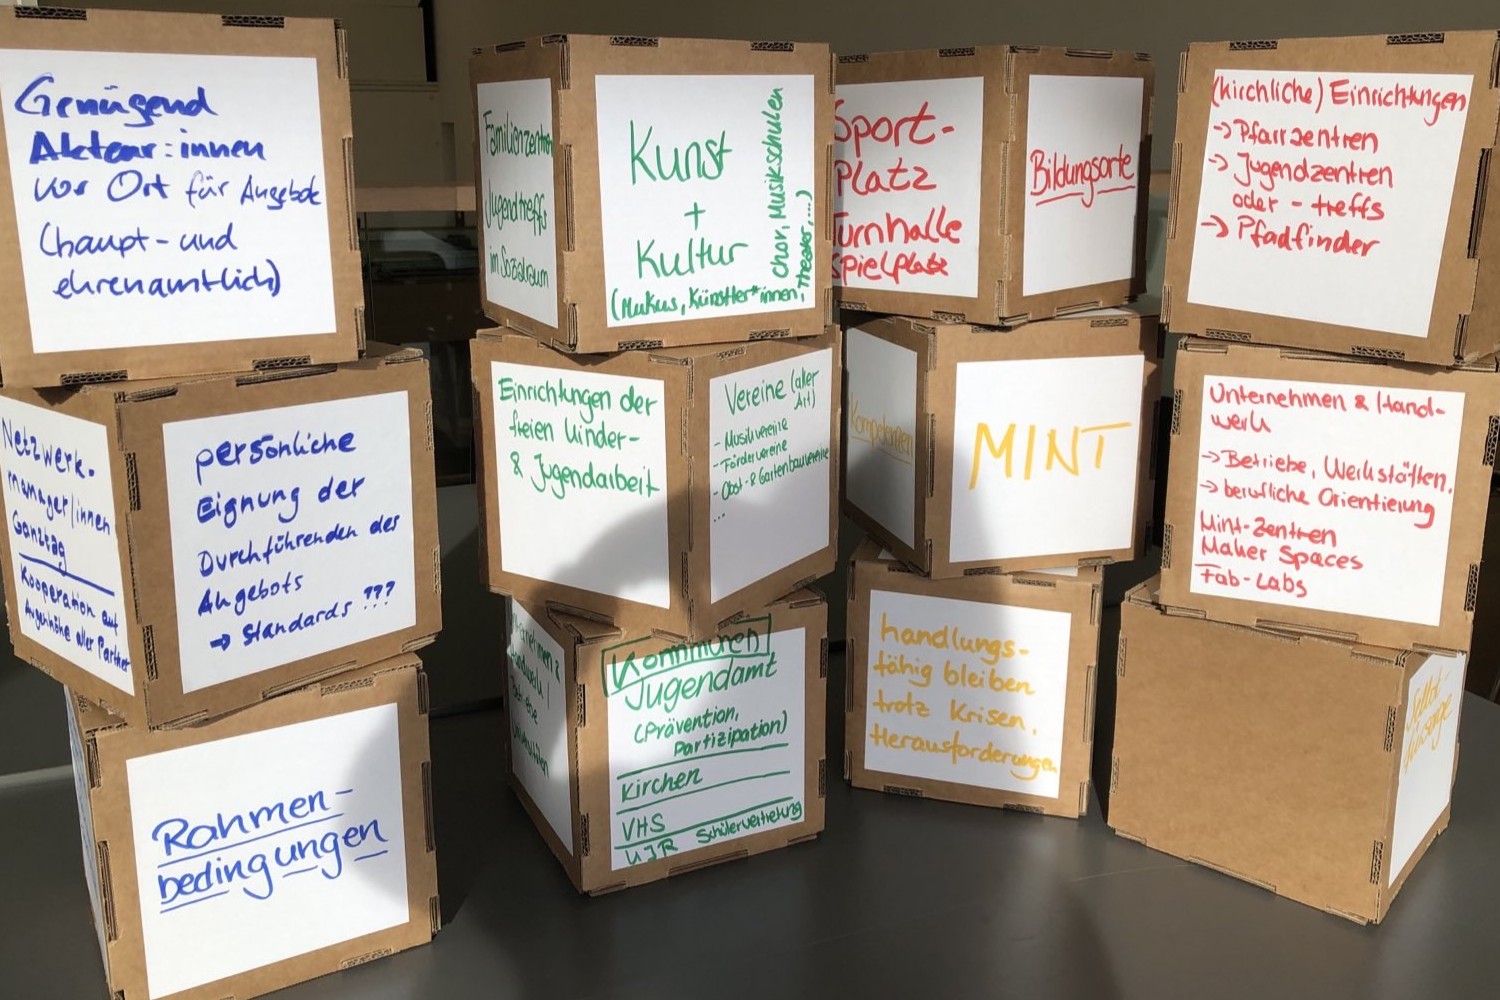 Genügend
Akteur:innen
vor Ort für Angebote
(haupt- und
ehrenamtlich)
Netzwerk-
manager/innen
Ganztag
Kooperation auf
Augenhöhe aller Partner
persönliche
Eignung der
Durchführenden des
Angebots
→ Standards ???
Rahmen-
bedingungen
Familienzentren
Jugendtreffs
im Sozialraum
Kunst
+
Kultur
(Mukus, Künstler*innen,
Chor, Musikschulen
Theater,...)
Einrichtungen der
freien Kinder-
& Jugendarbeit
Vereine (aller
Art)
- Musikvereine
- Fördervereine
- Obst- & Gartenbauvereine
...
Unternehmen &
Handwerk /
Betriebe
Kommunen
Jugendamt
(Prävention,
Partizipation)
Kirchen
VHS
KJR Schülervertretung
Sport-
Platz
Turnhalle
Spielplatz
Bildungsorte
Kompetenzen
MINT
handlungs-
fähig bleiben
trotz Krisen,
Herausforderungen
(kirchliche) Einrichtungen
→ Pfarrzentren
→ Jugendzentren
oder - treffs
→ Pfadfinder
Unternehmen & Hand-
werk
→ Betriebe, Werkstätten.
→ berufliche Orientierung
Mint-Zentren
Maker Spaces
Fab-Labs
Selbst-